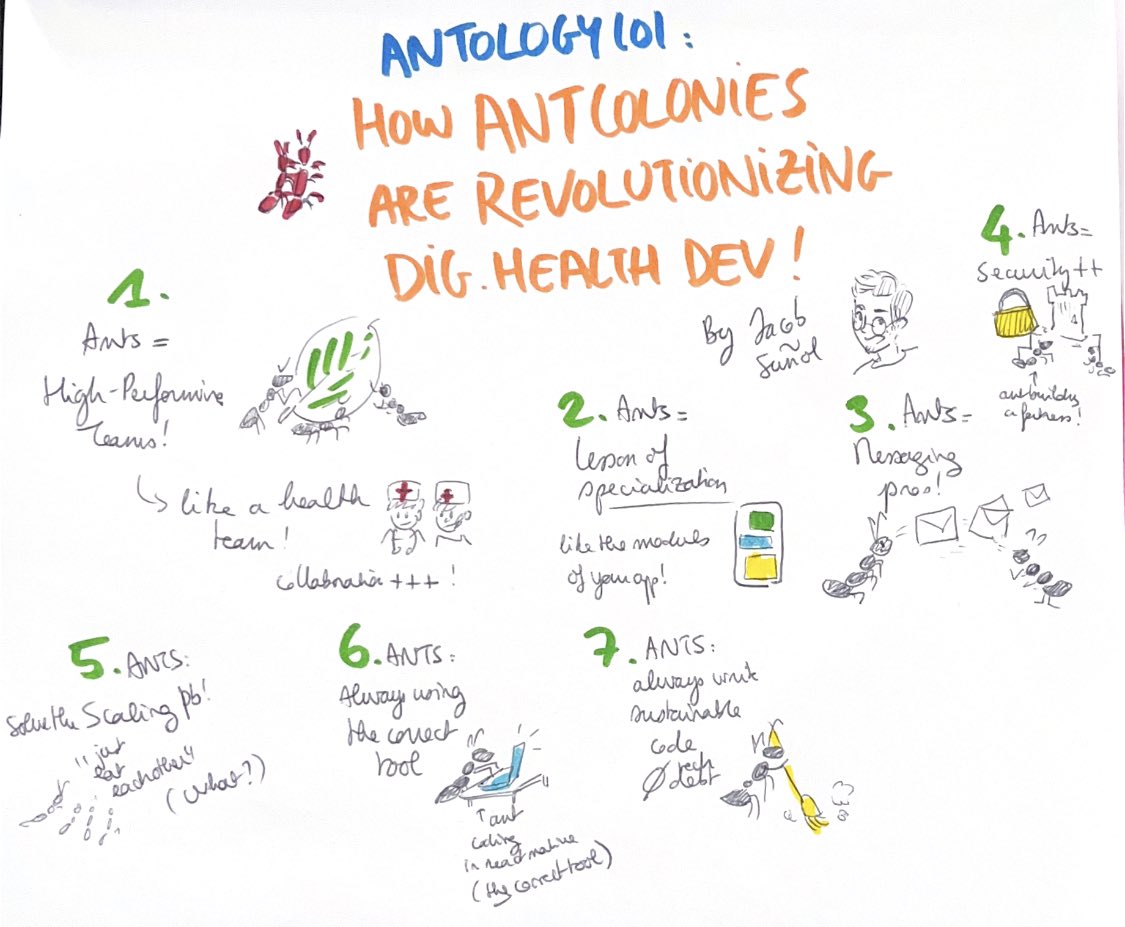 ANTOLOGY 101:
HOW ANT COLONIES
ARE REVOLUTIONIZING
DIG. HEALTH DEV!
By Jacob
Suñol
1.
Ants =
High-Performing
Teams!
like a health
team!
collaboration +++ !
2. Ants =
lesson of
specialization
like the modules
of your app!
3. Ants =
Messaging
pros!
4. Ants =
Security ++
ant builds
a fortress!
5. ANTS:
Solve the Scaling pb!
"just
eat
each other"
(what?)
6. ANTS:
Always using
the correct
tool
ant
coding
in react native
(the correct tool)
7. ANTS:
always write
sustainable
code
Ø tech
debt